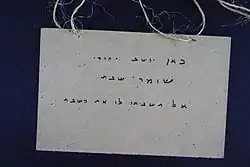 כאן יושב יהודי
שומר שבת
אל תשבתו לו את השבת